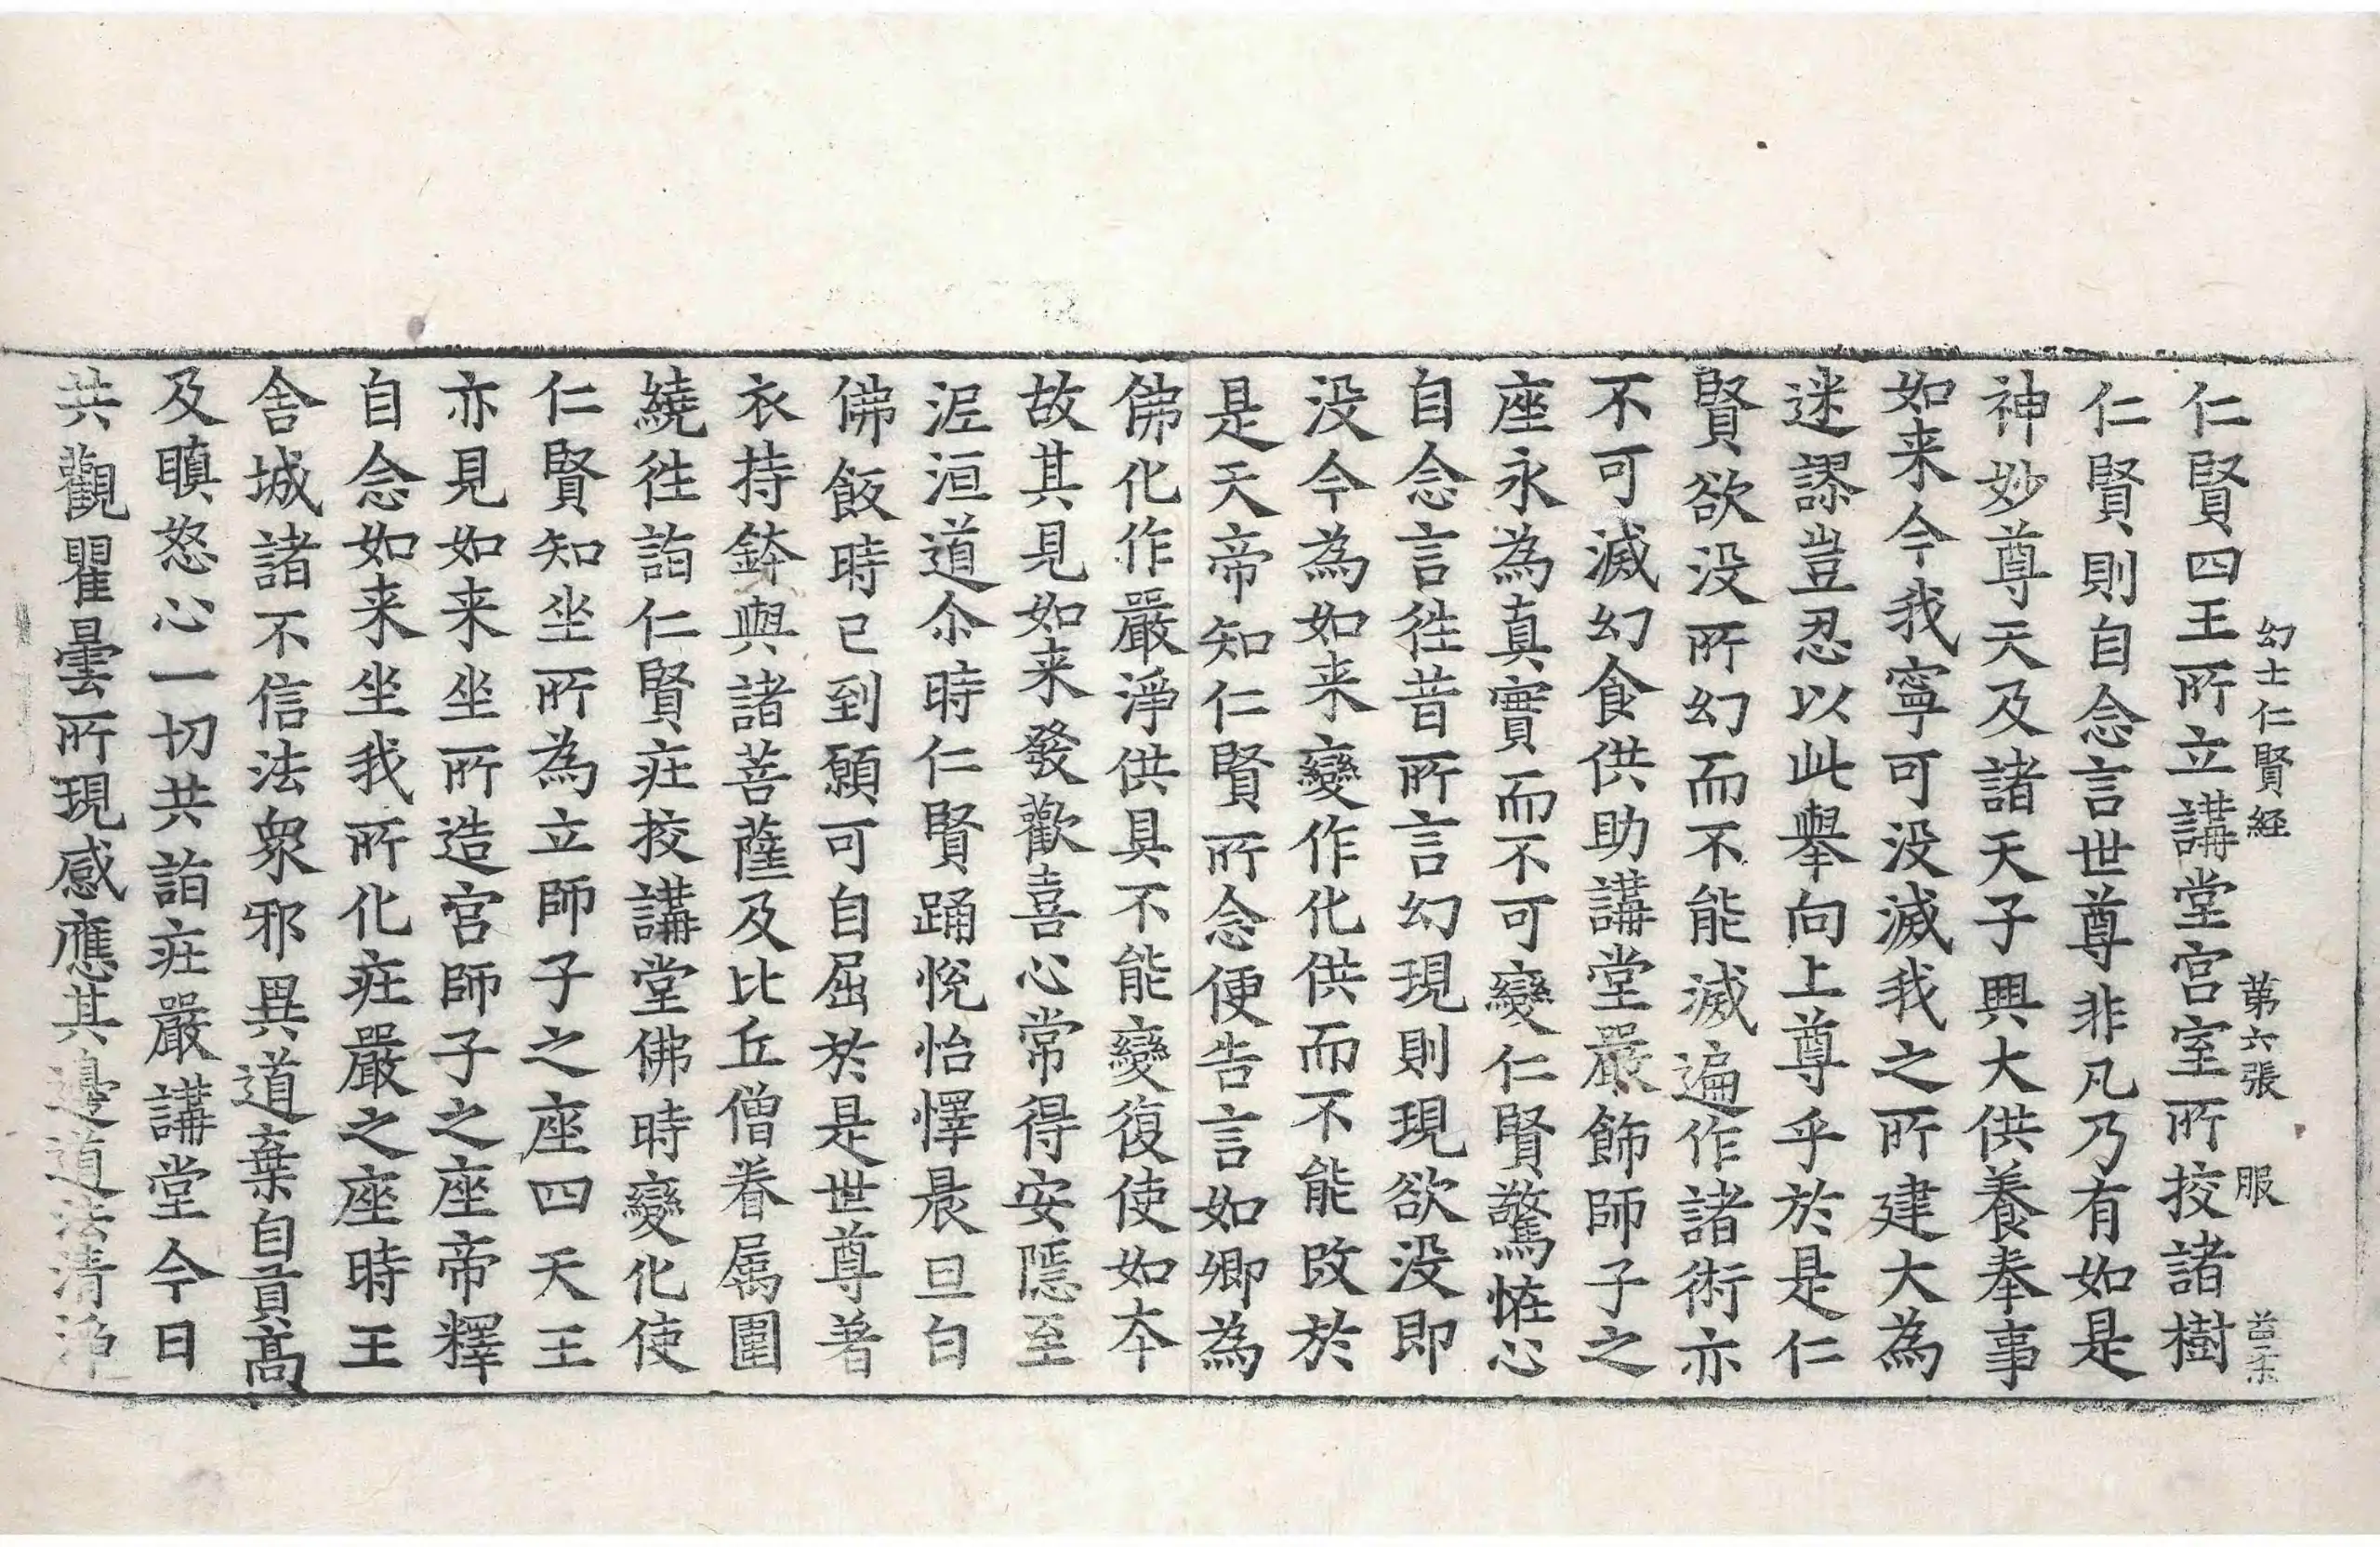 幻士仁賢経 第六張 服
仁賢四王所立講堂宮室所挍諸樹
仁賢則自念言世尊非凡乃有如是
神妙尊天及諸天子興大供養奉事
如来今我寧可没滅我之所建大為
迷謬豈忍以此舉向上尊乎於是仁
賢欲没所幻而不能滅遍作諸術亦
不可滅幻食供助講堂嚴飾師子之
座永為真實而不可變仁賢驚恠心
自念言徃昔所言幻現則現欲没即
没今為如来變作化供而不能改於
是天帝知仁賢所念便告言如卿為
佛化作嚴淨供具不能變復使如夲
故其見如来發歡喜心常得安隱至
泥洹道尒時仁賢踊悅怡懌晨旦白
佛飯時已到願可自屈於是世尊著
衣持鉢與諸菩薩及比丘僧眷屬圍
繞徃詣仁賢莊挍講堂佛時變化使
仁賢知坐所為立師子之座四天王
亦見如来坐所造宮師子之座帝釋
自念如来坐我所化莊嚴之座時王
舍城諸不信法衆邪異道棄自貢高
及瞋怒心一切共詣莊嚴講堂今日
共觀瞿曇所現感應其邊道法清淨